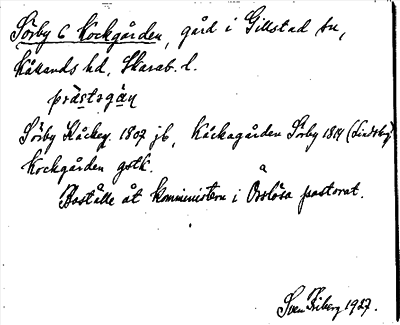 Sörby 6 Kockgården, gård i Gillstad sn,
Kållands hd, Skarab. l.
prästsgä̱n
Sörby Kåckeg. 1807 jb, Kåckagården Sörby 1814 (Lindsbg)
Kockgården gstk.
Boställe åt komministern i Örslösa pastorat.
Sven Friberg 1927.